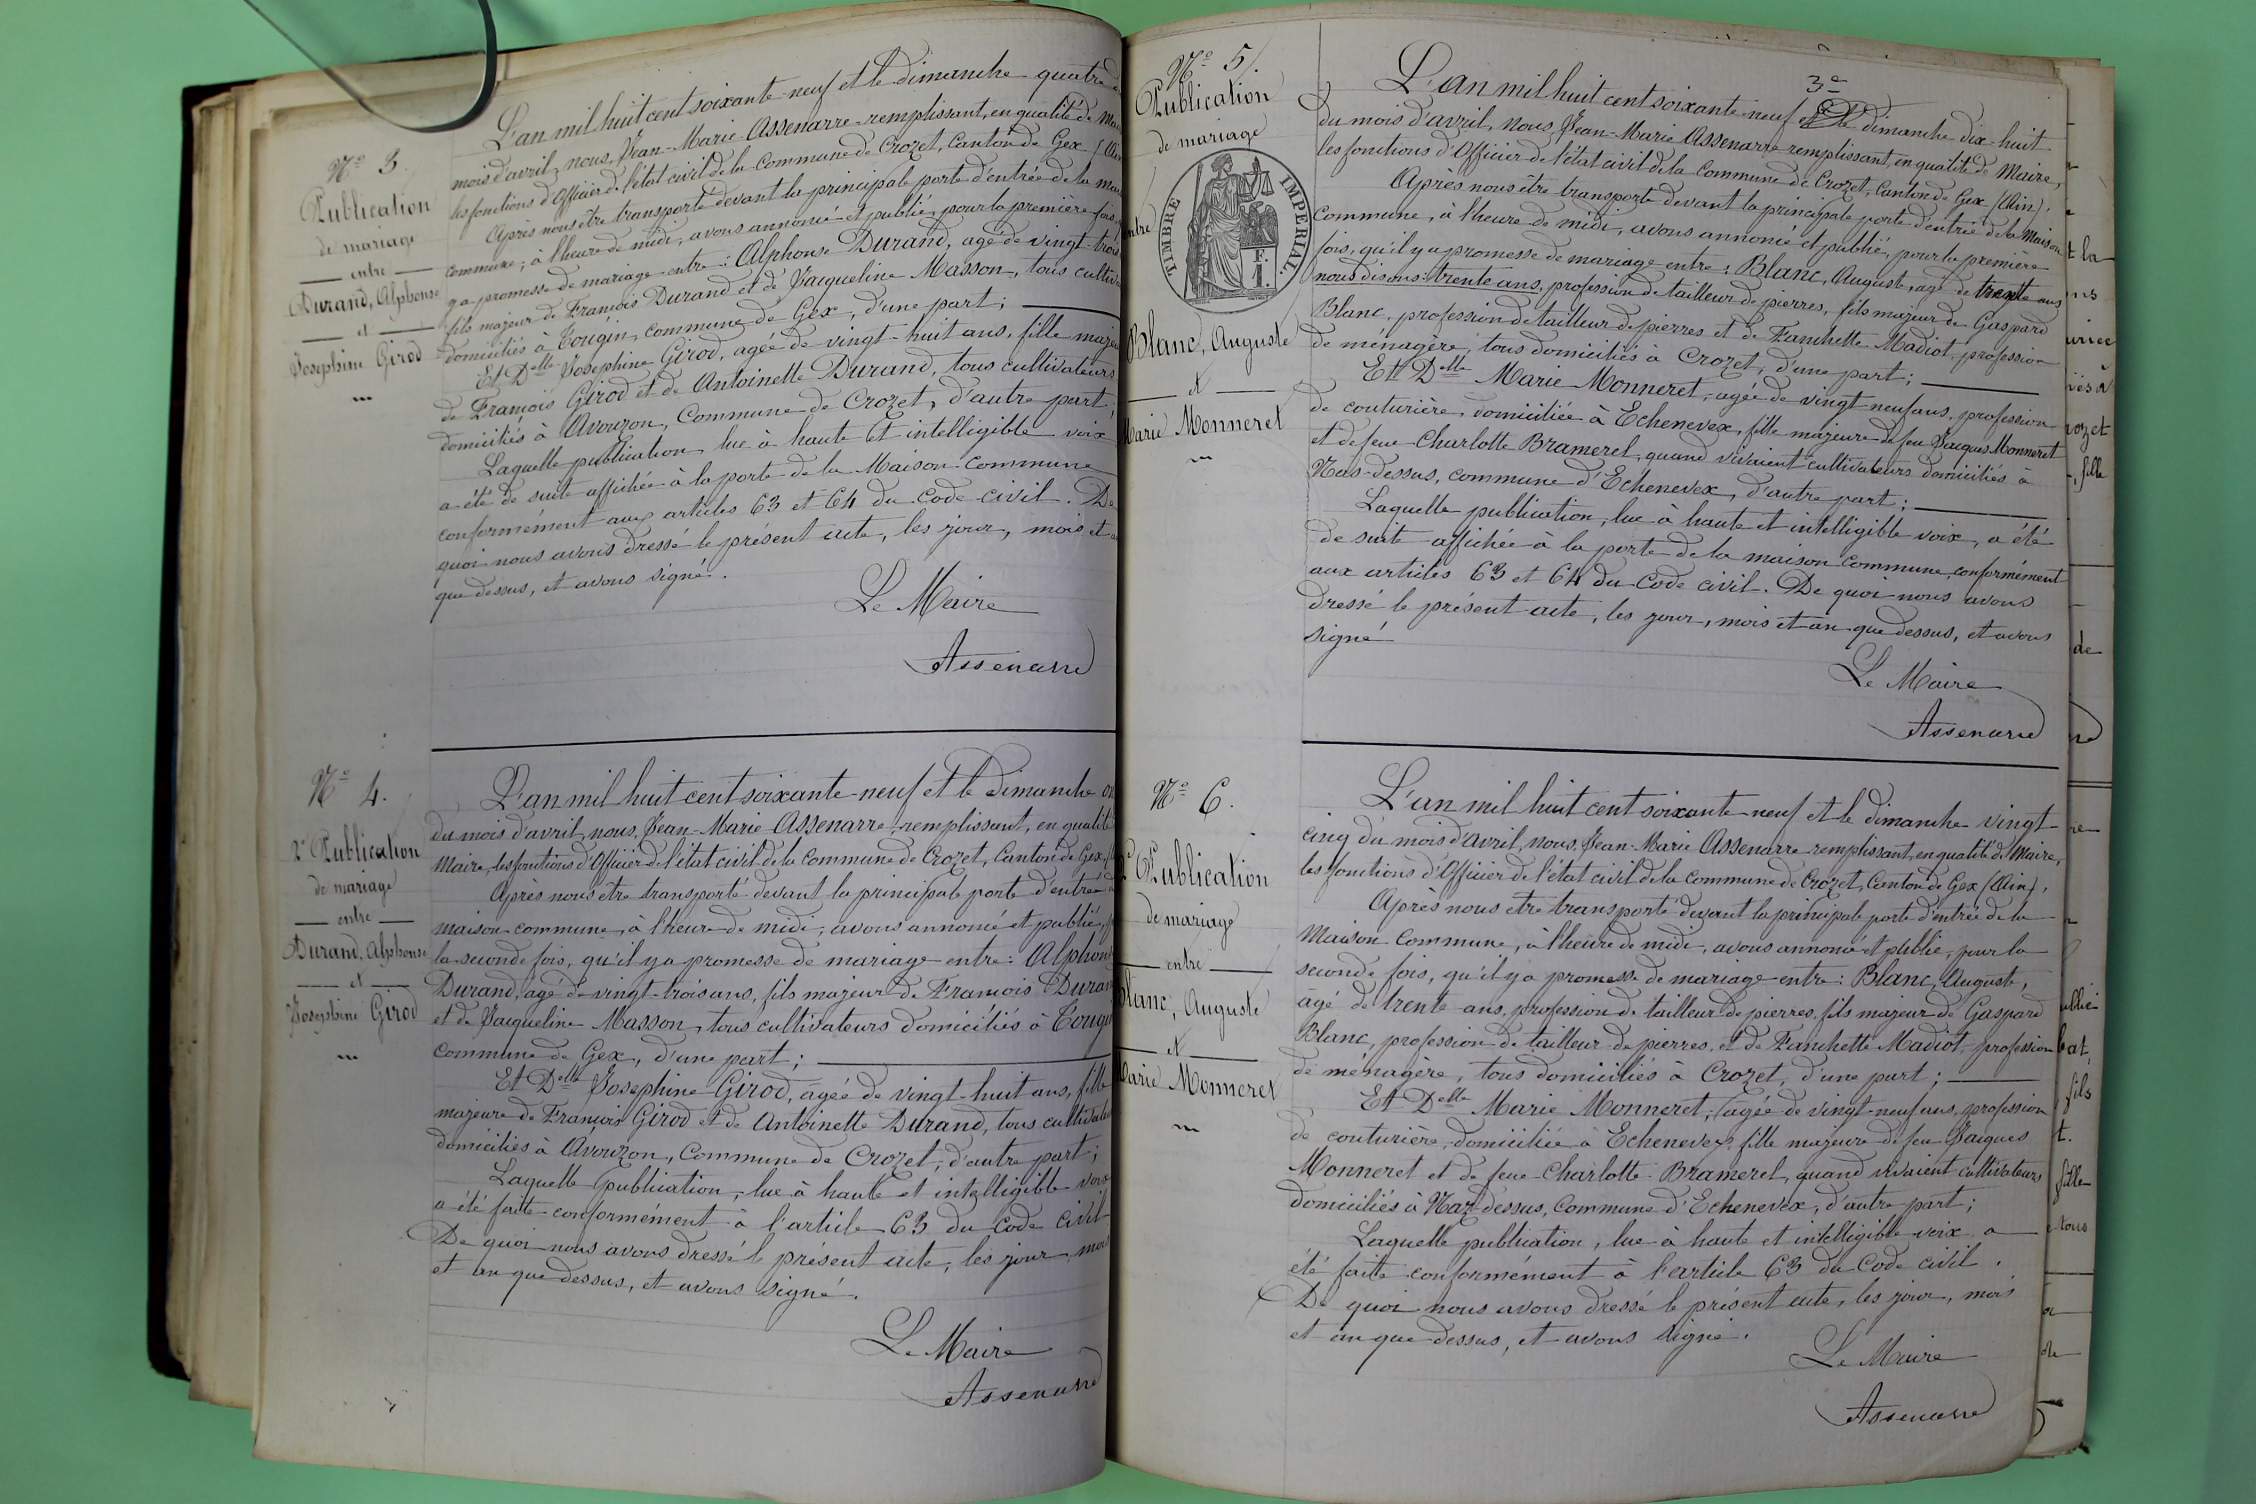 N° 3.
Publication
de mariage
entre
Durand, Alphonse
et
Josephine Girod
L'an mil huit cent soixante-neuf et le dimanche quatre
mois d'avril, nous, Jean-Marie Assenarre remplissant, en qualité de
les fonctions d'Officier de l'état civil de la Commune de Crozet, Canton de Gex
Après nous être transporté devant la principale porte d'entrée de la
commune, à l'heure de midi, avons annoncé et publié, pour la première fois,
y a promesse de mariage entre: Alphonse Durand, agé de vingt-trois
fils majeur de François Durand et de Jacqueline Masson, tous
domiciliés à Tougin, commune de Gex, d'une part;
Et Delle Josephine Girod, agée de vingt-huit ans, fille
de François Girod et de Antoinette Durand, tous cultivateurs
domiciliés à Avouzon, Commune de Crozet, d'autre part;
Laquelle publication, lue à haute et intelligible voix
a été de suite affichée à la porte de la Maison-Commune
conformément aux articles 63 et 64 du Code civil. De
quoi nous avons dressé le présent acte, les jour, mois et
que dessus, et avons signé.
Le Maire
Assenarre
N° 4.
2e Publication
de mariage
entre
Durand, Alphonse
et
Josephine Girod
L'an mil huit cent soixante-neuf et le dimanche
du mois d'avril, nous, Jean-Marie Assenarre, remplissant, en qualité
Maire, les fontions d'Officier de l'état civil de la Commune de Crozet, Canton de Gex,
Après nous être transporté devant la principale porte d'entrée
maison commune, à l'heure de midi, avons annoncé et publié,
la seconde fois, qu'il y a promesse de mariage entre: Alphonse
Durand, agé de vingt-trois ans, fils majeur de François Durand
et de Jacqueline Masson, tous cultivateurs domiciliés à
commune de Gex, d'une part;
Et Delle Josephine Girod, agée de vingt-huit ans, fille
majeure de François Girod et de Antoinette Durand, tous
domiciliés à Avouzon, Commune de Crozet, d'autre part;
Laquelle publication, lue à haute et intelligible voix
a été faite conformément à l'article 63 du Code civil
De quoi nous avons dressé le présent acte, les jour, mois
et an que dessus, et avons signé.
Le Maire
Assenarre
N° 5.
Publication
de mariage
entre
TIMBRE IMPERIAL.
1 F.
Blanc, Auguste
et
Marie Monneret
3e
L'an mil huit cent soixante-neuf et le dimanche dix-huit
du mois d'avril, nous, Jean-Marie Assenarre remplissant, en qualité de Maire,
les fonctions d'Officier de l'état civil de la Commune de Crozet, Canton de Gex (Ain).
Après nous être transporté devant la principale porte d'entrée de la Maison
Commune, à l'heure de midi, avons annoncé et publié, pour la première
fois, qu'il y a promesse de mariage entre: Blanc, Auguste, agé de trente ans
nous disons: trente ans, profession de tailleur de pierres, fils majeur de Gaspard
Blanc, profession de tailleur de pierres et de Fanchette Madiot, profession
de ménagère, tous domiciliés à Crozet, d'une part;
Et Delle Marie Monneret, agée de vingt neuf ans, profession
de couturière, domiciliée à Echenevex, fille majeure de feu Jacques Monneret
et de feue Charlotte Brameret, quand vivaient cultivateurs domiciliés à
Nas-dessus, commune d'Echenevex, d'autre part;
Laquelle publication, lue à haute et intelligible voix, a été
de suite affichée à la porte de la maison commune, conformément
aux articles 63 et 64 du Code civil. De quoi nous avons
dressé le présent acte, les jour, mois et an que dessus, et avons
signé
Le Maire
Assenarre
N° 6.
Publication
de mariage
entre
Blanc, Auguste
et
Marie Monneret
L'an mil huit cent soixante-neuf et le dimanche vingt
cinq du mois d'avril, nous, Jean-Marie Assenarre remplissant, en qualité de Maire,
les fonctions d'Officier de l'état civil de la Commune de Crozet, Canton de Gex (Ain).
Après nous etre transporté devant la principale porte d'entrée de la
Maison Commune, à l'heure de midi, avons annoncé et publié, pour la
seconde fois, qu'il y a promesse de mariage entre: Blanc, Auguste,
âgé de trente ans, profession de tailleur de pierres, fils majeur de Gaspard
Blanc, profession de tailleur de pierres, et de Fanchette Madiot, profession
de ménagère, tous domiciliés à Crozet, d'une part;
Et Delle Marie Monneret, agée de vingt-neuf ans, profession
de couturière, domiciliée à Echenevex, fille majeure de feu Jacques
Monneret et de feue Charlotte Brameret, quand vivaient cultivateurs
domiciliés à Naz-dessus, Commune d'Echenevex, d'autre part;
Laquelle publication, lue à haute et intelligible voix a
été faite conformément à l'article 63 du Code civil.
De quoi nous avons dressé le présent acte, les jour, mois
et an que dessus, et avons signé.
Le Maire
Assenarre